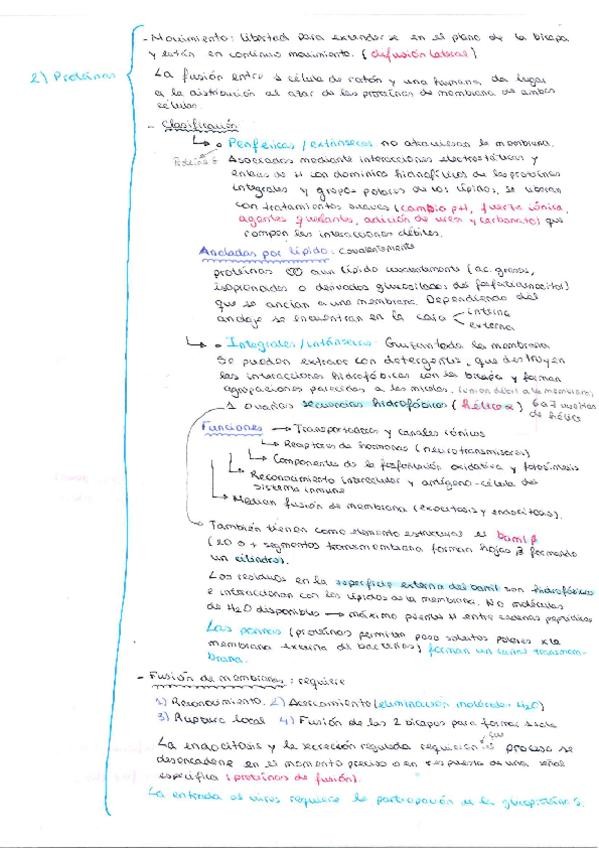 2) Proteínas
- Movimiento: libertad para extenderse en el plano de la bicapa
y están en continuo movimiento. (difusión lateral)
La fusión entre 1 célula de ratón y una humana da lugar
a la distribución al azar de las proteínas de membrana de ambas
células.
- Clasificación
Periféricas / extrínsecas no atraviesan la membrana.
Asociadas mediante interacciones electrostáticas y
enlaces de H con dominios hidrofílicos de las proteínas
integrales y grupos polares de los lípidos, se liberan
con tratamientos suaves (cambio pH, fuerza iónica,
agentes quelantes, adición de urea y carbonato) que
rompen las interacciones débiles.
Ancladas por lípido: Covalentemente
proteínas a un lípido covalentemente (ac. grasos,
isoprenoides o derivados glucosilados del fosfatidilinositol)
que se anclan a una membrana. Dependiendo del
anclaje se encuentran en la cara interna
externa
Integrales / intrínsecas la membrana
Se pueden extraer con detergentes, que destruyen
las interacciones hidrofóbicas con la bicapa y forman
agrupaciones parecidas a las micelas. (unión débil a la membrana)
1 o varias secuencias hidrofóbicas (hélice α) 6 a 7 vueltas
de hélice
Funciones → Transportadores y canales iónicos
Receptores de hormonas (neurotransmisores)
Componentes de la fosforilación oxidativa y fotosíntesis
Reconocimiento intercelular y antígeno-célula del
sistema inmune
Median fusión de membrana (exocitosis y endocitosis).
También tienen como elemento estructural el barril β
(20 o + segmentos transmembrana forman hojas β formando
un cilindro).
Los residuos en la superficie externa del barril son hidrofóbicos
e interaccionan con los lípidos de la membrana. No moléculas
de H2O disponibles → máximo puentes H entre cadenas peptídicas
Las porinas (proteínas permiten paso solutos polares x la
membrana externa de bacterias) forman un barril transmem-
brana.
- Fusión de membranas: requiere
1) Reconocimiento. 2) Acercamiento (eliminación moléculas H2O)
3) Ruptura local 4) Fusión de las 2 bicapas para formar 1 sola
La endocitosis y la secreción regulada requieren que el proceso se
desencadene en el momento preciso o en respuesta de una señal
específica (proteínas de fusión).
La entrada de virus requiere la participación de la glucoproteína